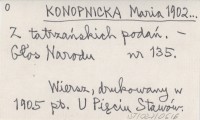 0
KONOPNICKA Maria 1902...
Z tatrzańskich podań. –
Głos Narodu nr 135.
Wiersz, drukowany w
1905 pt. U Pięciu Stawów.